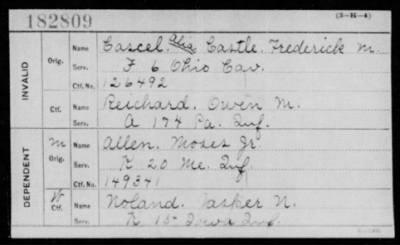 182809 (3-H-4)
INVALID
Orig. Name Cascel, alias Castle, Frederick M.
Serv. F 6 Ohio Cav.
Ctf. No. 126492
Ctf. Name Reichard, Owen M.
Serv. A 174 Pa. Inf.
DEPENDENT
M Orig. Name Allen, Moses Jr.
Serv. K 20 Me. Inf.
Ctf. No. 149341
W Ctf. Name Noland, Jasper N.
Serv. K 15 Iowa Inf.